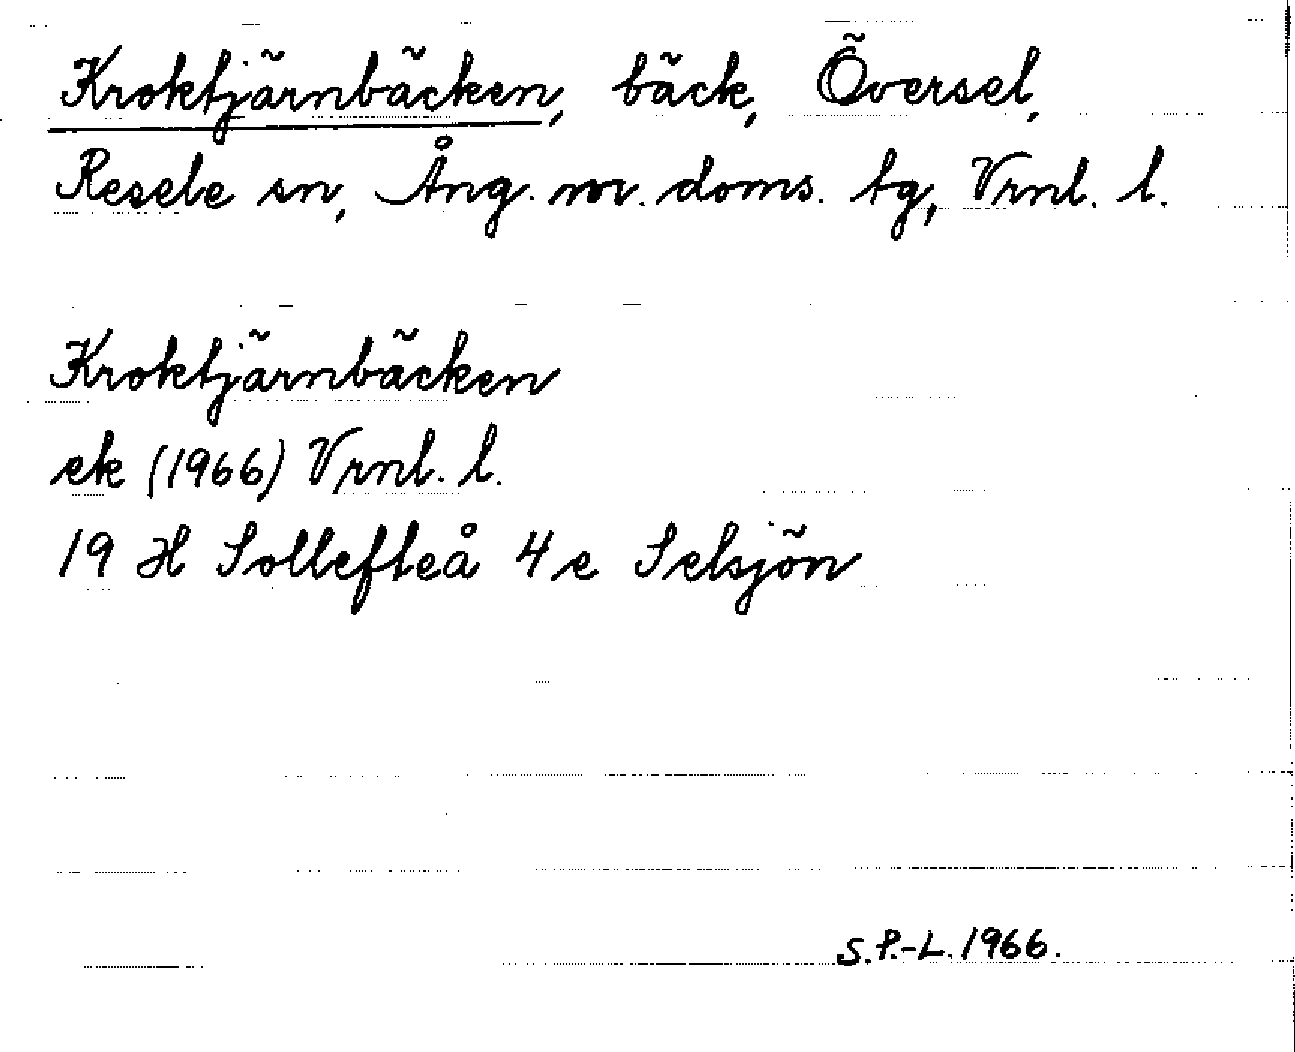 Kroktjärnbäcken, bäck, Översel,
Resele sn, Ång. m. doms. tg, Vrnl. l.
Kroktjärnbäcken
ek (1966) Vrnl. l.
19 H Sollefteå 4 e Selsjön
S.P.-L. 1966.